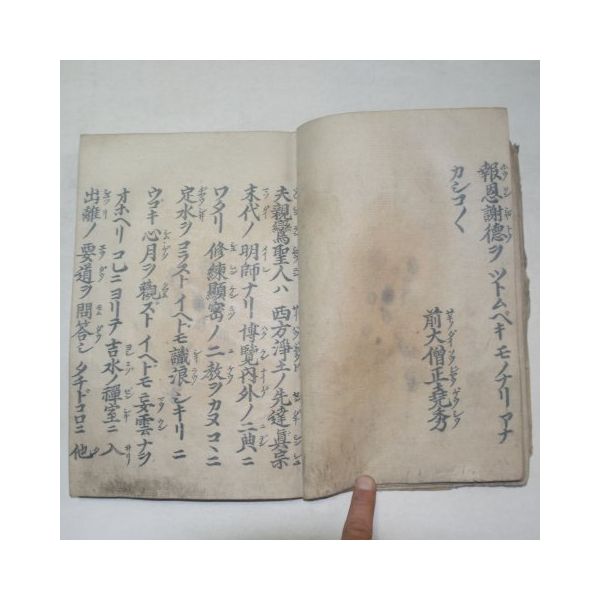 報恩謝德ヲ ツトムベキ モノナリ アナ
カシコ〳〵
前大僧正堯秀
夫親鸞聖人ハ 西方淨土ノ先達眞宗
末代ノ 明師ナリ 博覽内外ノ二典ニ
ワタリ 修練顯密ノ 二教ヲカヌ コヽニ
定水ヲ コラスト イヘドモ 識浪シキリ ニ
ウゴキ 心月ヲ 觀スト イヘドモ 妄雲ナヲ
オホヘリ コレニ ヨリテ 吉水ノ禪室ニ 入
出離ノ 要道ヲ 問答シ タチドコロニ 他